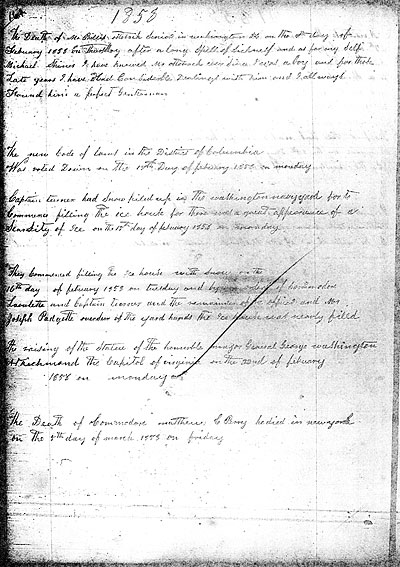 1858
The Death of Mr
February 1858 on Thursday after a long Spell of Sickness and as for my Self
Michael Shiner I have knowed Mr ever Since I was a boy and for the
Late years I have had Considerable Dealings with him and I allways
Found him a perfect Genterman
The new Code of Laws in the District of Columbia
Was voted Down on the 15th Day of february 1858 on monday
Captain had Snow piled up in the washington navy yard for to
Commence filling the ice house for there was a great appearance of a
Scarsity of ice on the 15th day of february 1858 on monday
They Commenced filling the ice house with Snow on the
16th day of february 1858 on tuesday and by order of Commodore
and Captain and the of and Mr
Joseph Padgette overseer of the yard hands the ice house was nearly filed
the raising of the Statue of the honorable major General George washington
At Richmond the Capitol of virginia on the 22nd of february
1858 on monday
The Death of Commodore matthew C Perry he died in new york
on the 5th day of march 1858 on friday